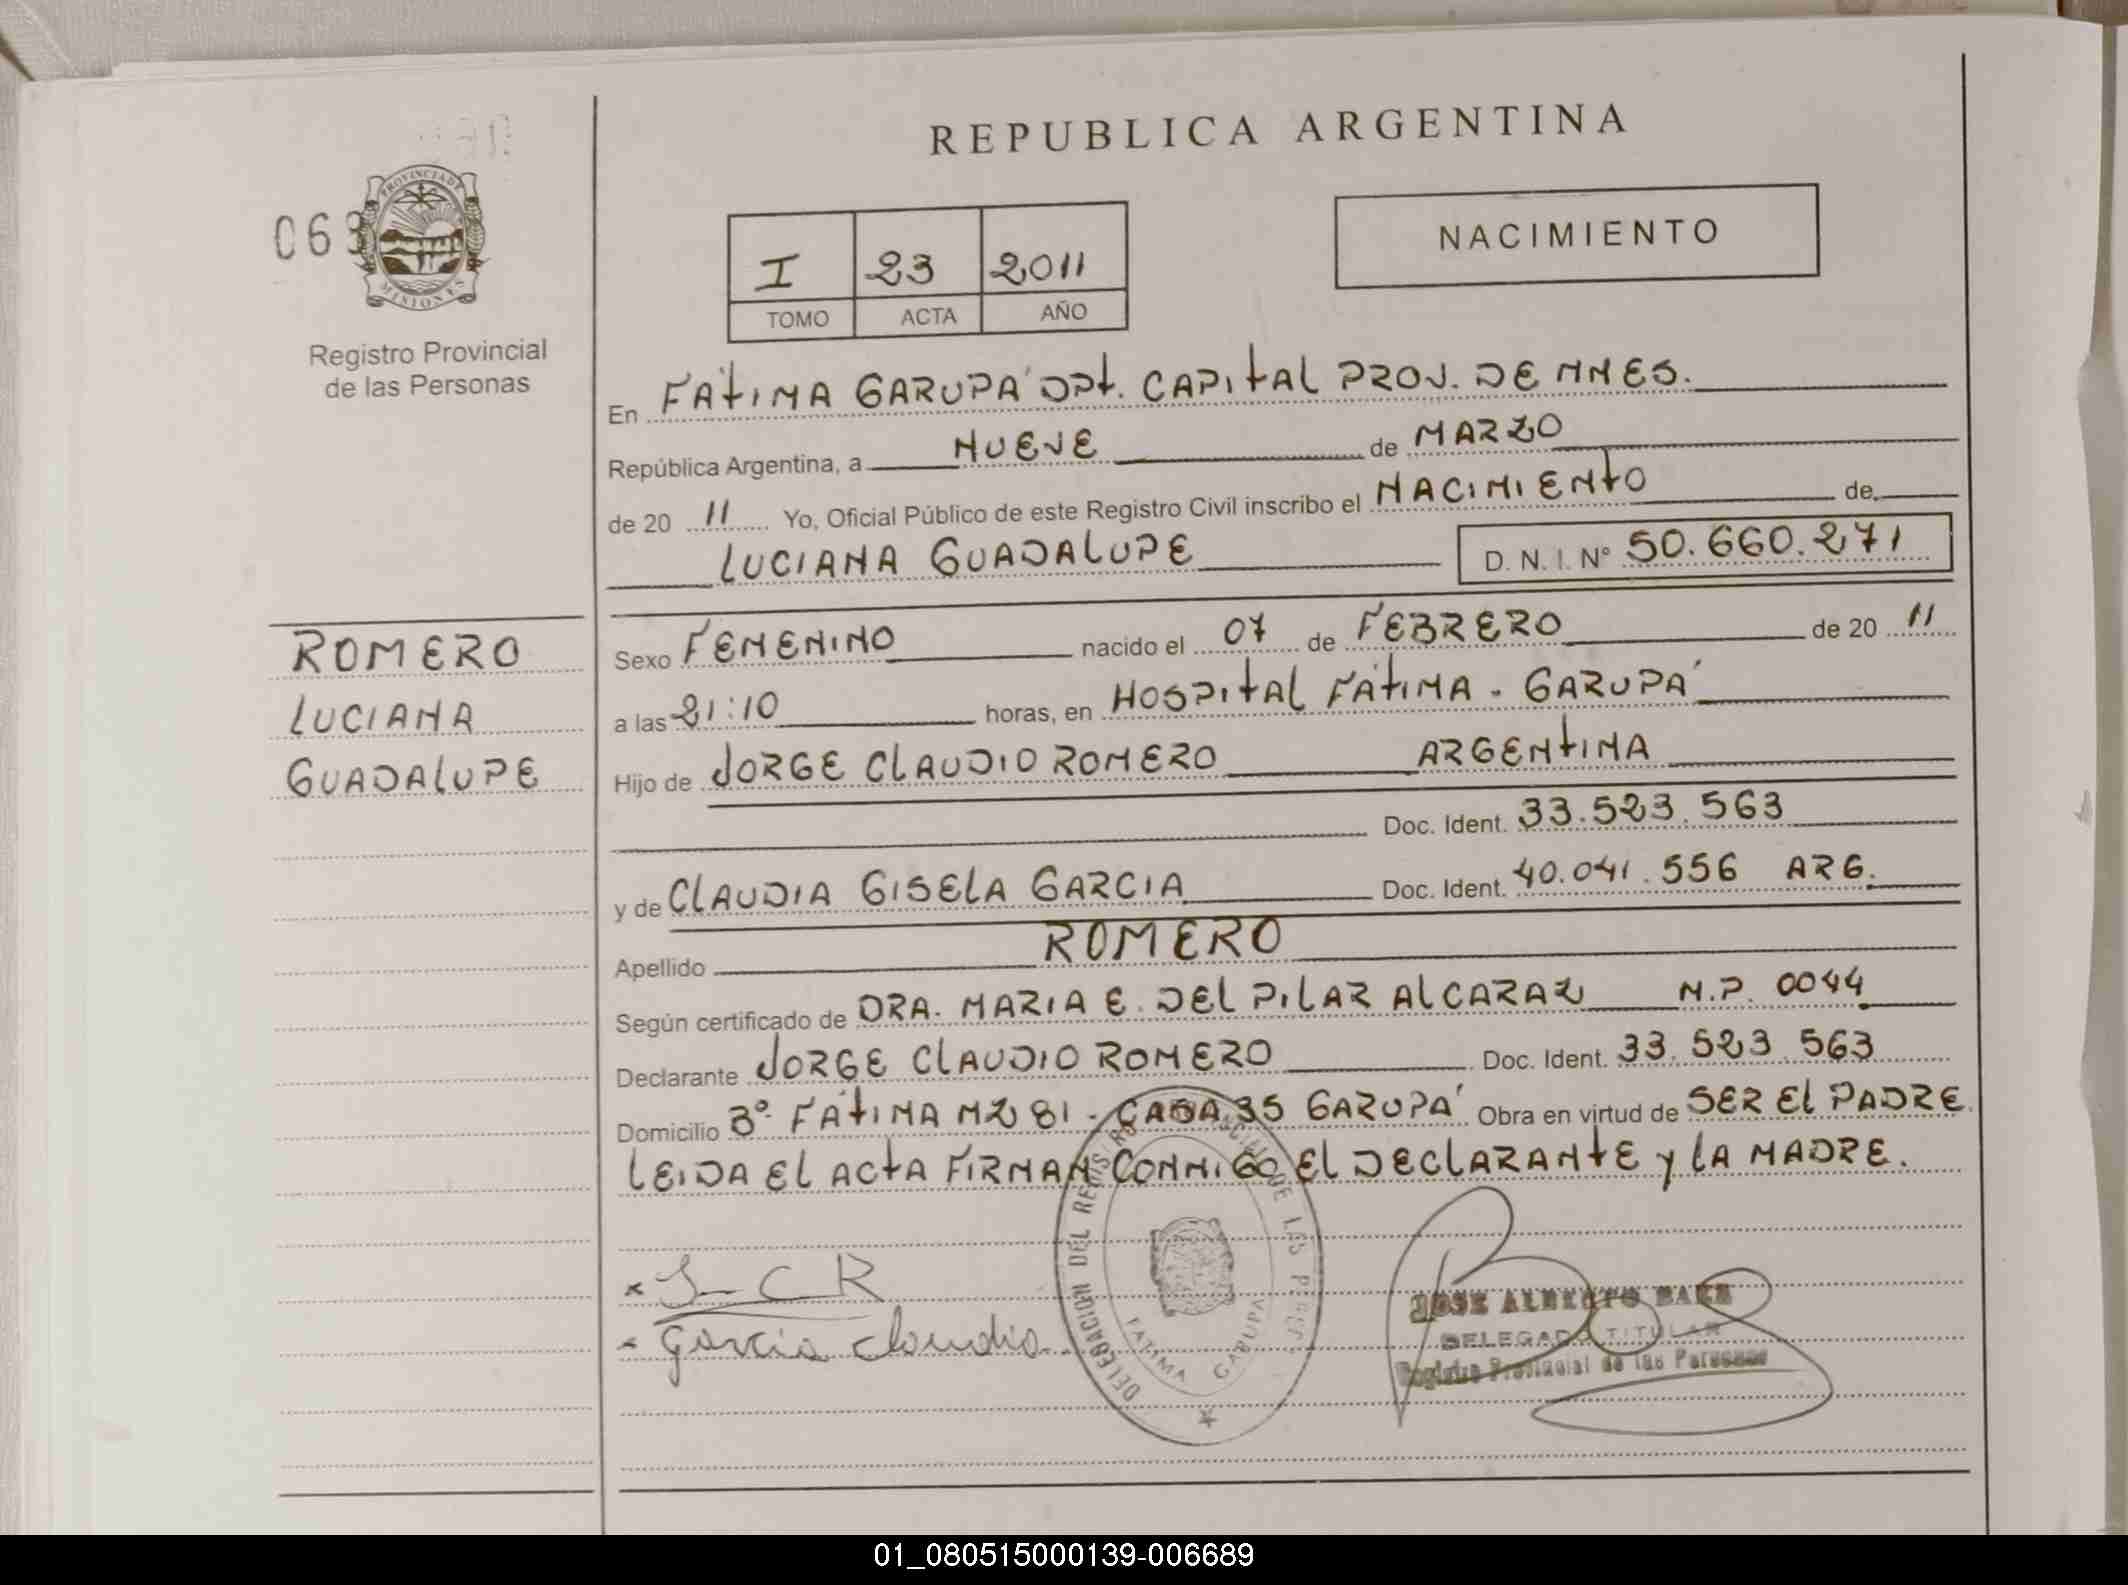 REPUBLICA ARGENTINA
063
PROVINCIA DE
MISIONES
Registro Provincial
de las Personas
I 23 2011
TOMO ACTA AÑO
NACIMIENTO
En FÁTIMA GARUPÁ DPt. CAPITAL PROV. DE MNES.
República Argentina, a NUEVE de MARZO
de 20 11 Yo, Oficial Público de este Registro Civil inscribo el NACIMIENTO de
LUCIANA GUADALUPE D. N. I. Nº 50.660.271
ROMERO
LUCIANA
GUADALUPE
Sexo FEMENINO nacido el 07 de FEBRERO de 20 11
a las 21:10 horas, en HOSPITAL FÁTIMA - GARUPÁ
Hijo de JORGE CLAUDIO ROMERO ARGENTINA
Doc. Ident. 33.523.563
y de CLAUDIA GISELA GARCIA Doc. Ident. 40.041.556 ARG.
Apellido ROMERO
Según certificado de DRA. MARIA E. DEL PILAR ALCARAZ M.P. 0044
Declarante JORGE CLAUDIO ROMERO Doc. Ident. 33.523.563
Domicilio Bº FÁTIMA MZ 81 - CASA 35 GARUPÁ Obra en virtud de SER EL PADRE.
LEIDA EL ACTA FIRMAN CONMIGO EL DECLARANTE Y LA MADRE.
x J C R
x Garcia Claudia
DELEGACION DEL REGISTRO PROVINCIAL DE LAS PERS.
FATIMA GARUPA
JOSE ALBERTO BAEZ
DELEGADO TITULAR
Registro Provincial de las Personas
01_080515000139-006689